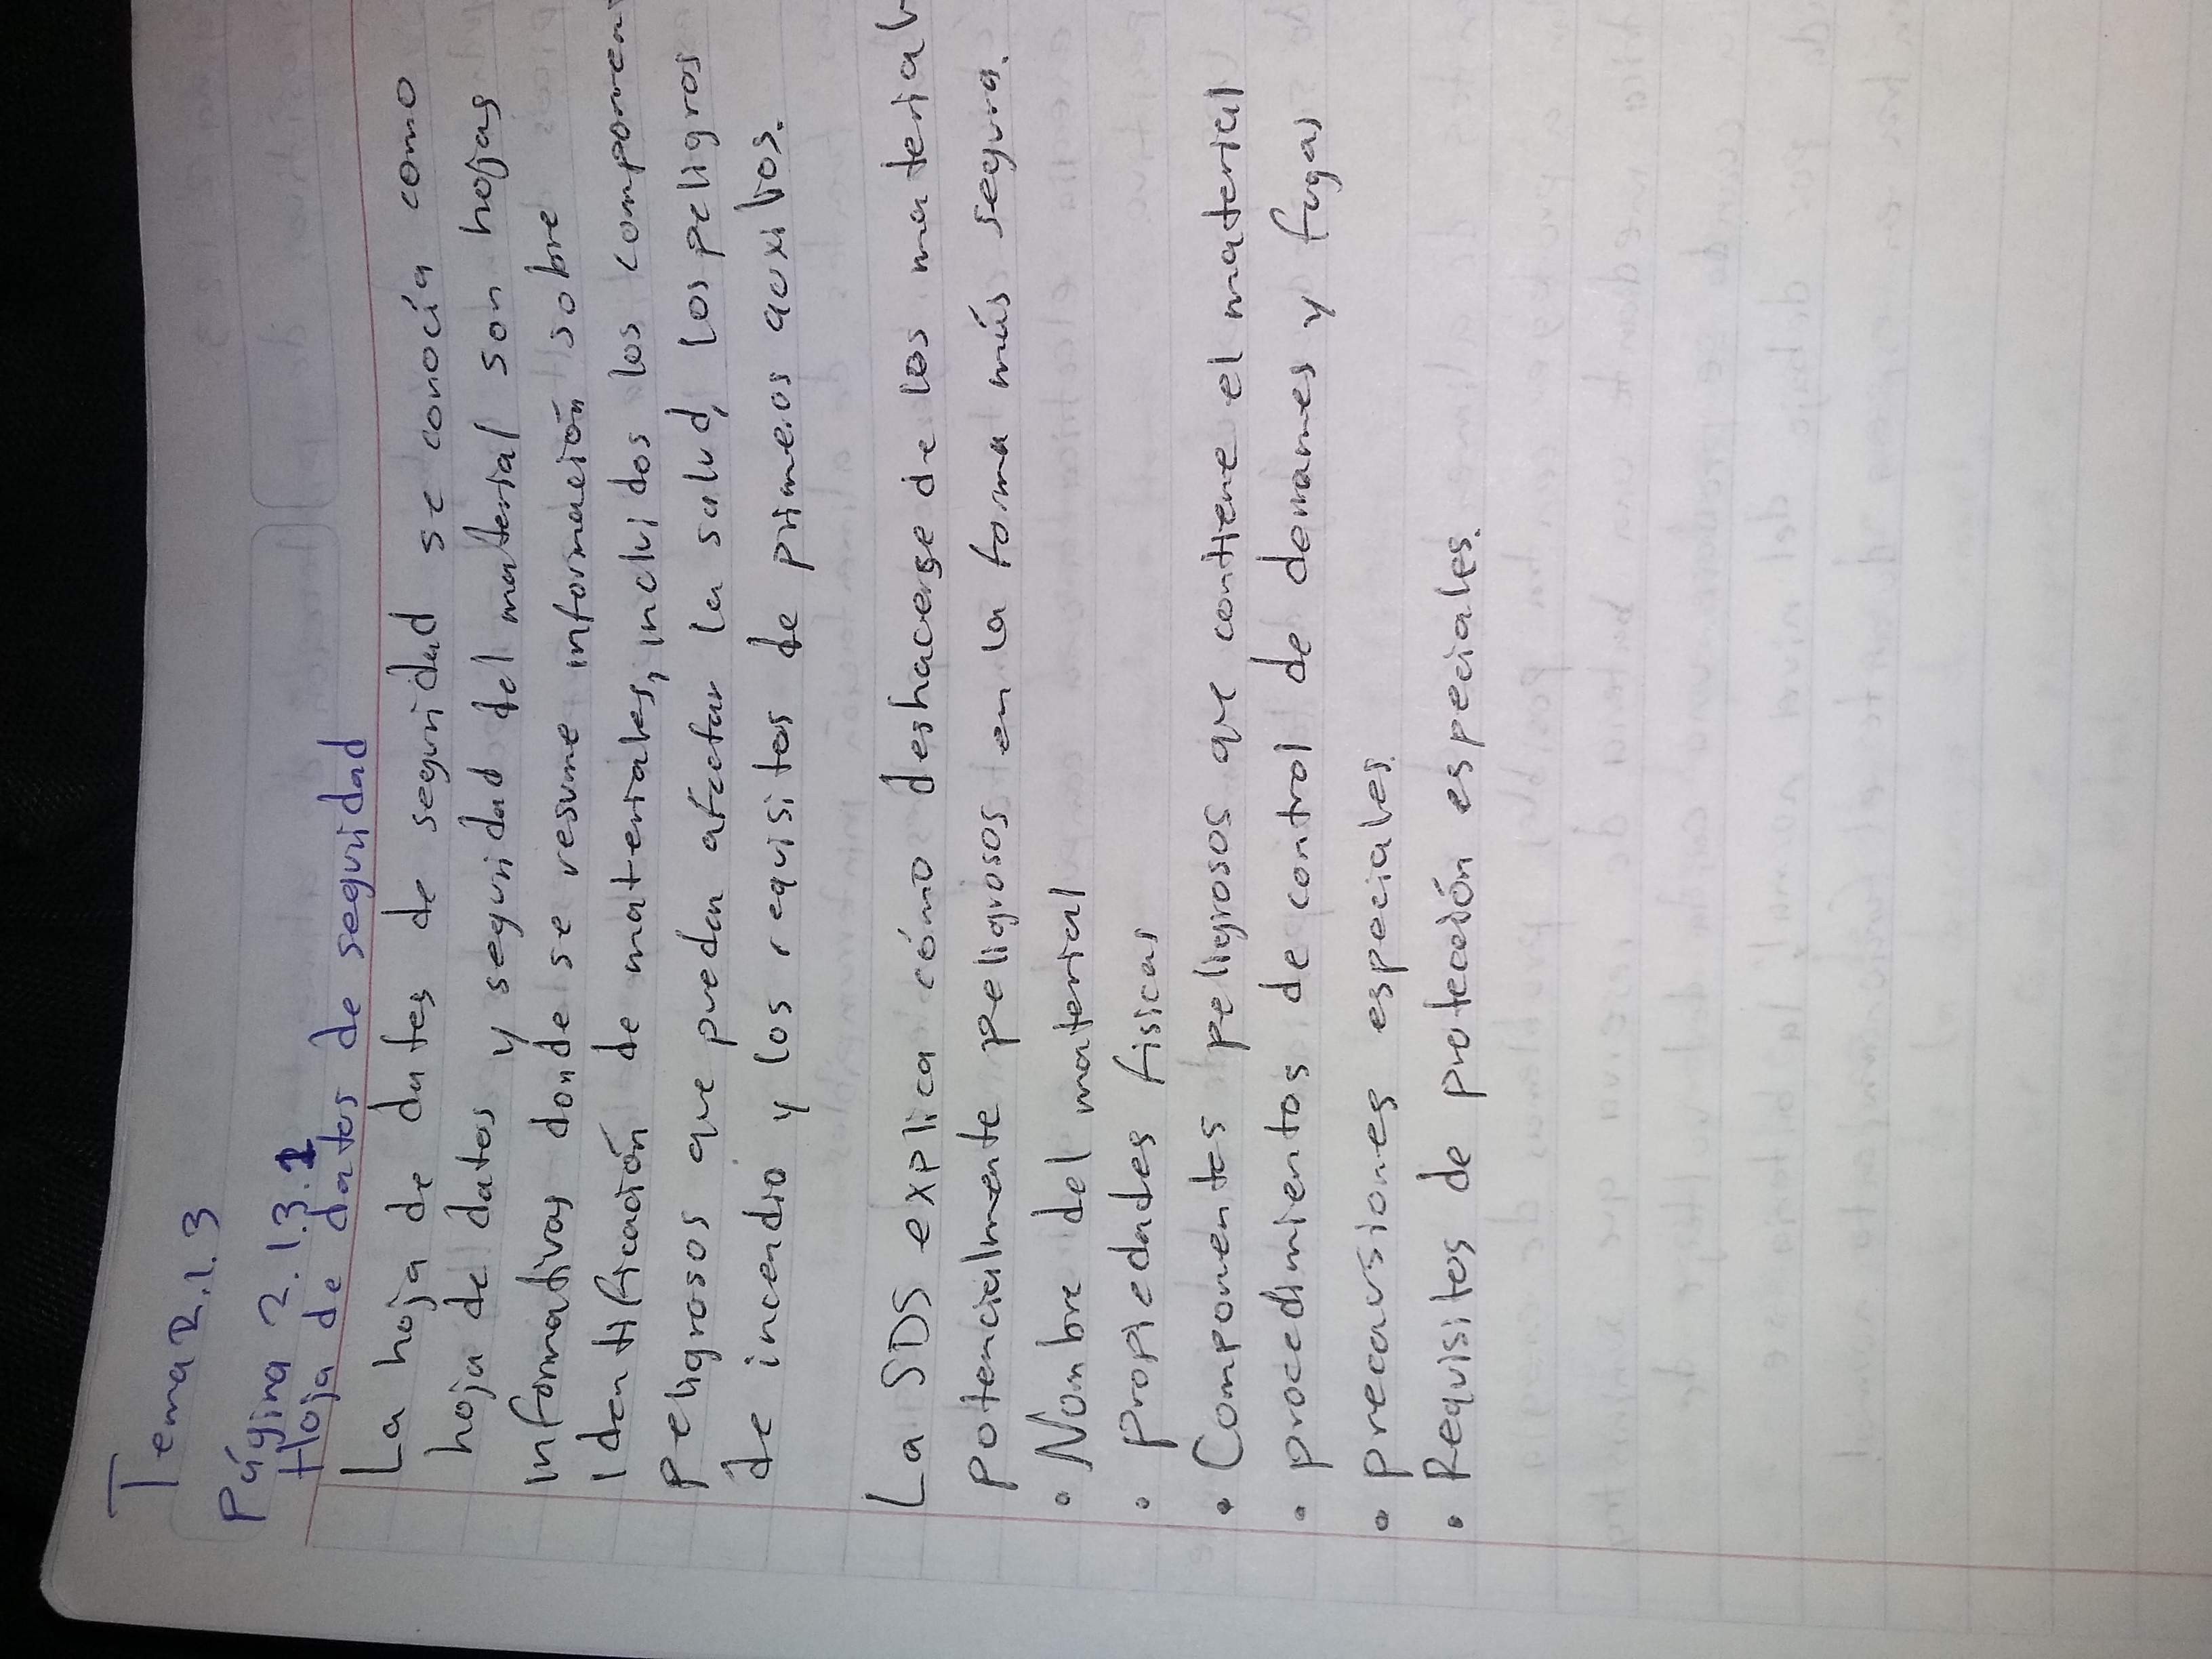 Tema 2.1.3
Página 2.1.3.1
Hoja de datos de seguridad
La hoja de datos de seguridad se conocía como
hoja de datos y seguridad del material son hojas
informativas donde se resume información sobre
Identificación de materiales, incluidos los componen
peligrosos que puedan afectar la salud, los peligros
de incendio y los requisitos de primeros auxilios.
La SDS explica cómo deshacerse de los material
potencialmente peligrosos en la forma más segura.
• Nombre del material
• propiedades fisicas
• Componentes peligrosos que contiene el material
• procedimientos de control de derrames y fugas
• precausiones especiales.
• Requisitos de protección especiales.